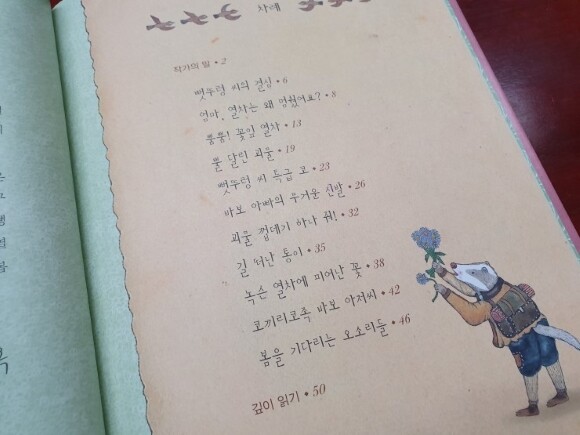 차례
작가의 말 • 2
뻣뚜렁 씨의 결심 • 6
엄마, 열차는 왜 멈췄어요? • 8
뿡뿡! 꽃잎 열차 • 13
뿔 달린 괴물 • 19
뻣뚜렁 씨 특급 코 • 23
바보 아빠의 무거운 신발 • 26
괴물 껍데기 하나 뿐! • 32
길 떠난 통이 • 35
녹슨 열차에 피어난 꽃 • 38
코끼리코쪽 바보 아저씨 • 42
봄을 기다리는 오소리들 • 46
깊이 읽기 • 50